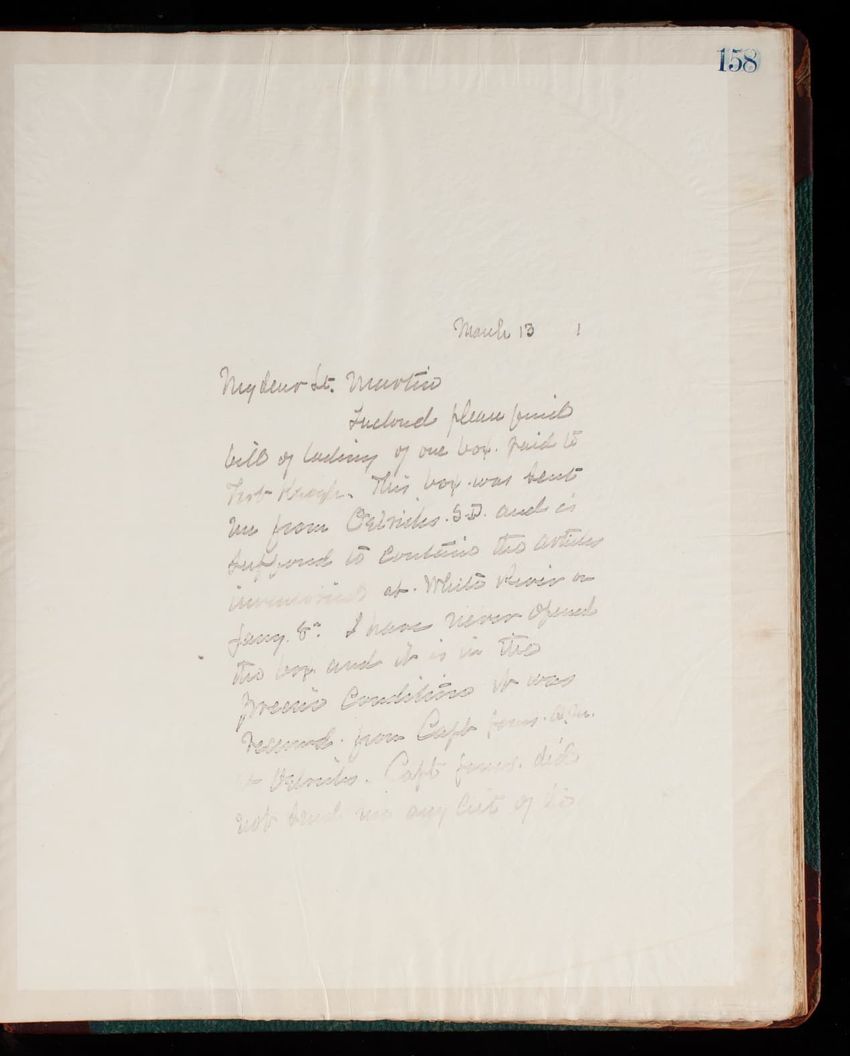 158
March 13 1
My dear Lt. Martin
Inclosed please find
bill of lading of one box. Paid to
Fort Keogh. This box was sent
me from Oelrichs. S.D. and is
supposed to contain the articles
inventoried at White River on
Jany. 8". I have never opened
the box and it is in the
precise condition it was
received from Capt Jones. Q.M.
at Oelrichs. Capt Jones. did
not send me any list of